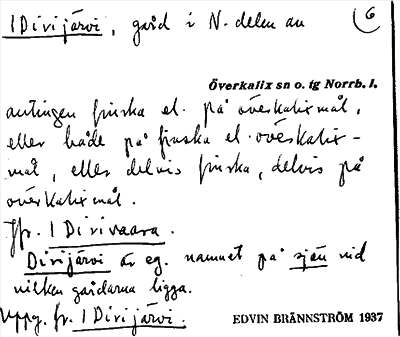 1 Dirijärvi, gård i N. delen av
6
Överkalix sn o. tg Norrb. l.
antingen finska el. på överkalixmål,
eller både på finska el. överkalix-
mål, eller delvis finska, delvis på
överkalixmål.
Jfr. 1 Dirivaara.
Dirijärvi är eg. namnet på sjön vid
vilken gårdarna ligga.
Uppg. fr. 1 Dirijärvi.
EDVIN BRÄNNSTRÖM 1937